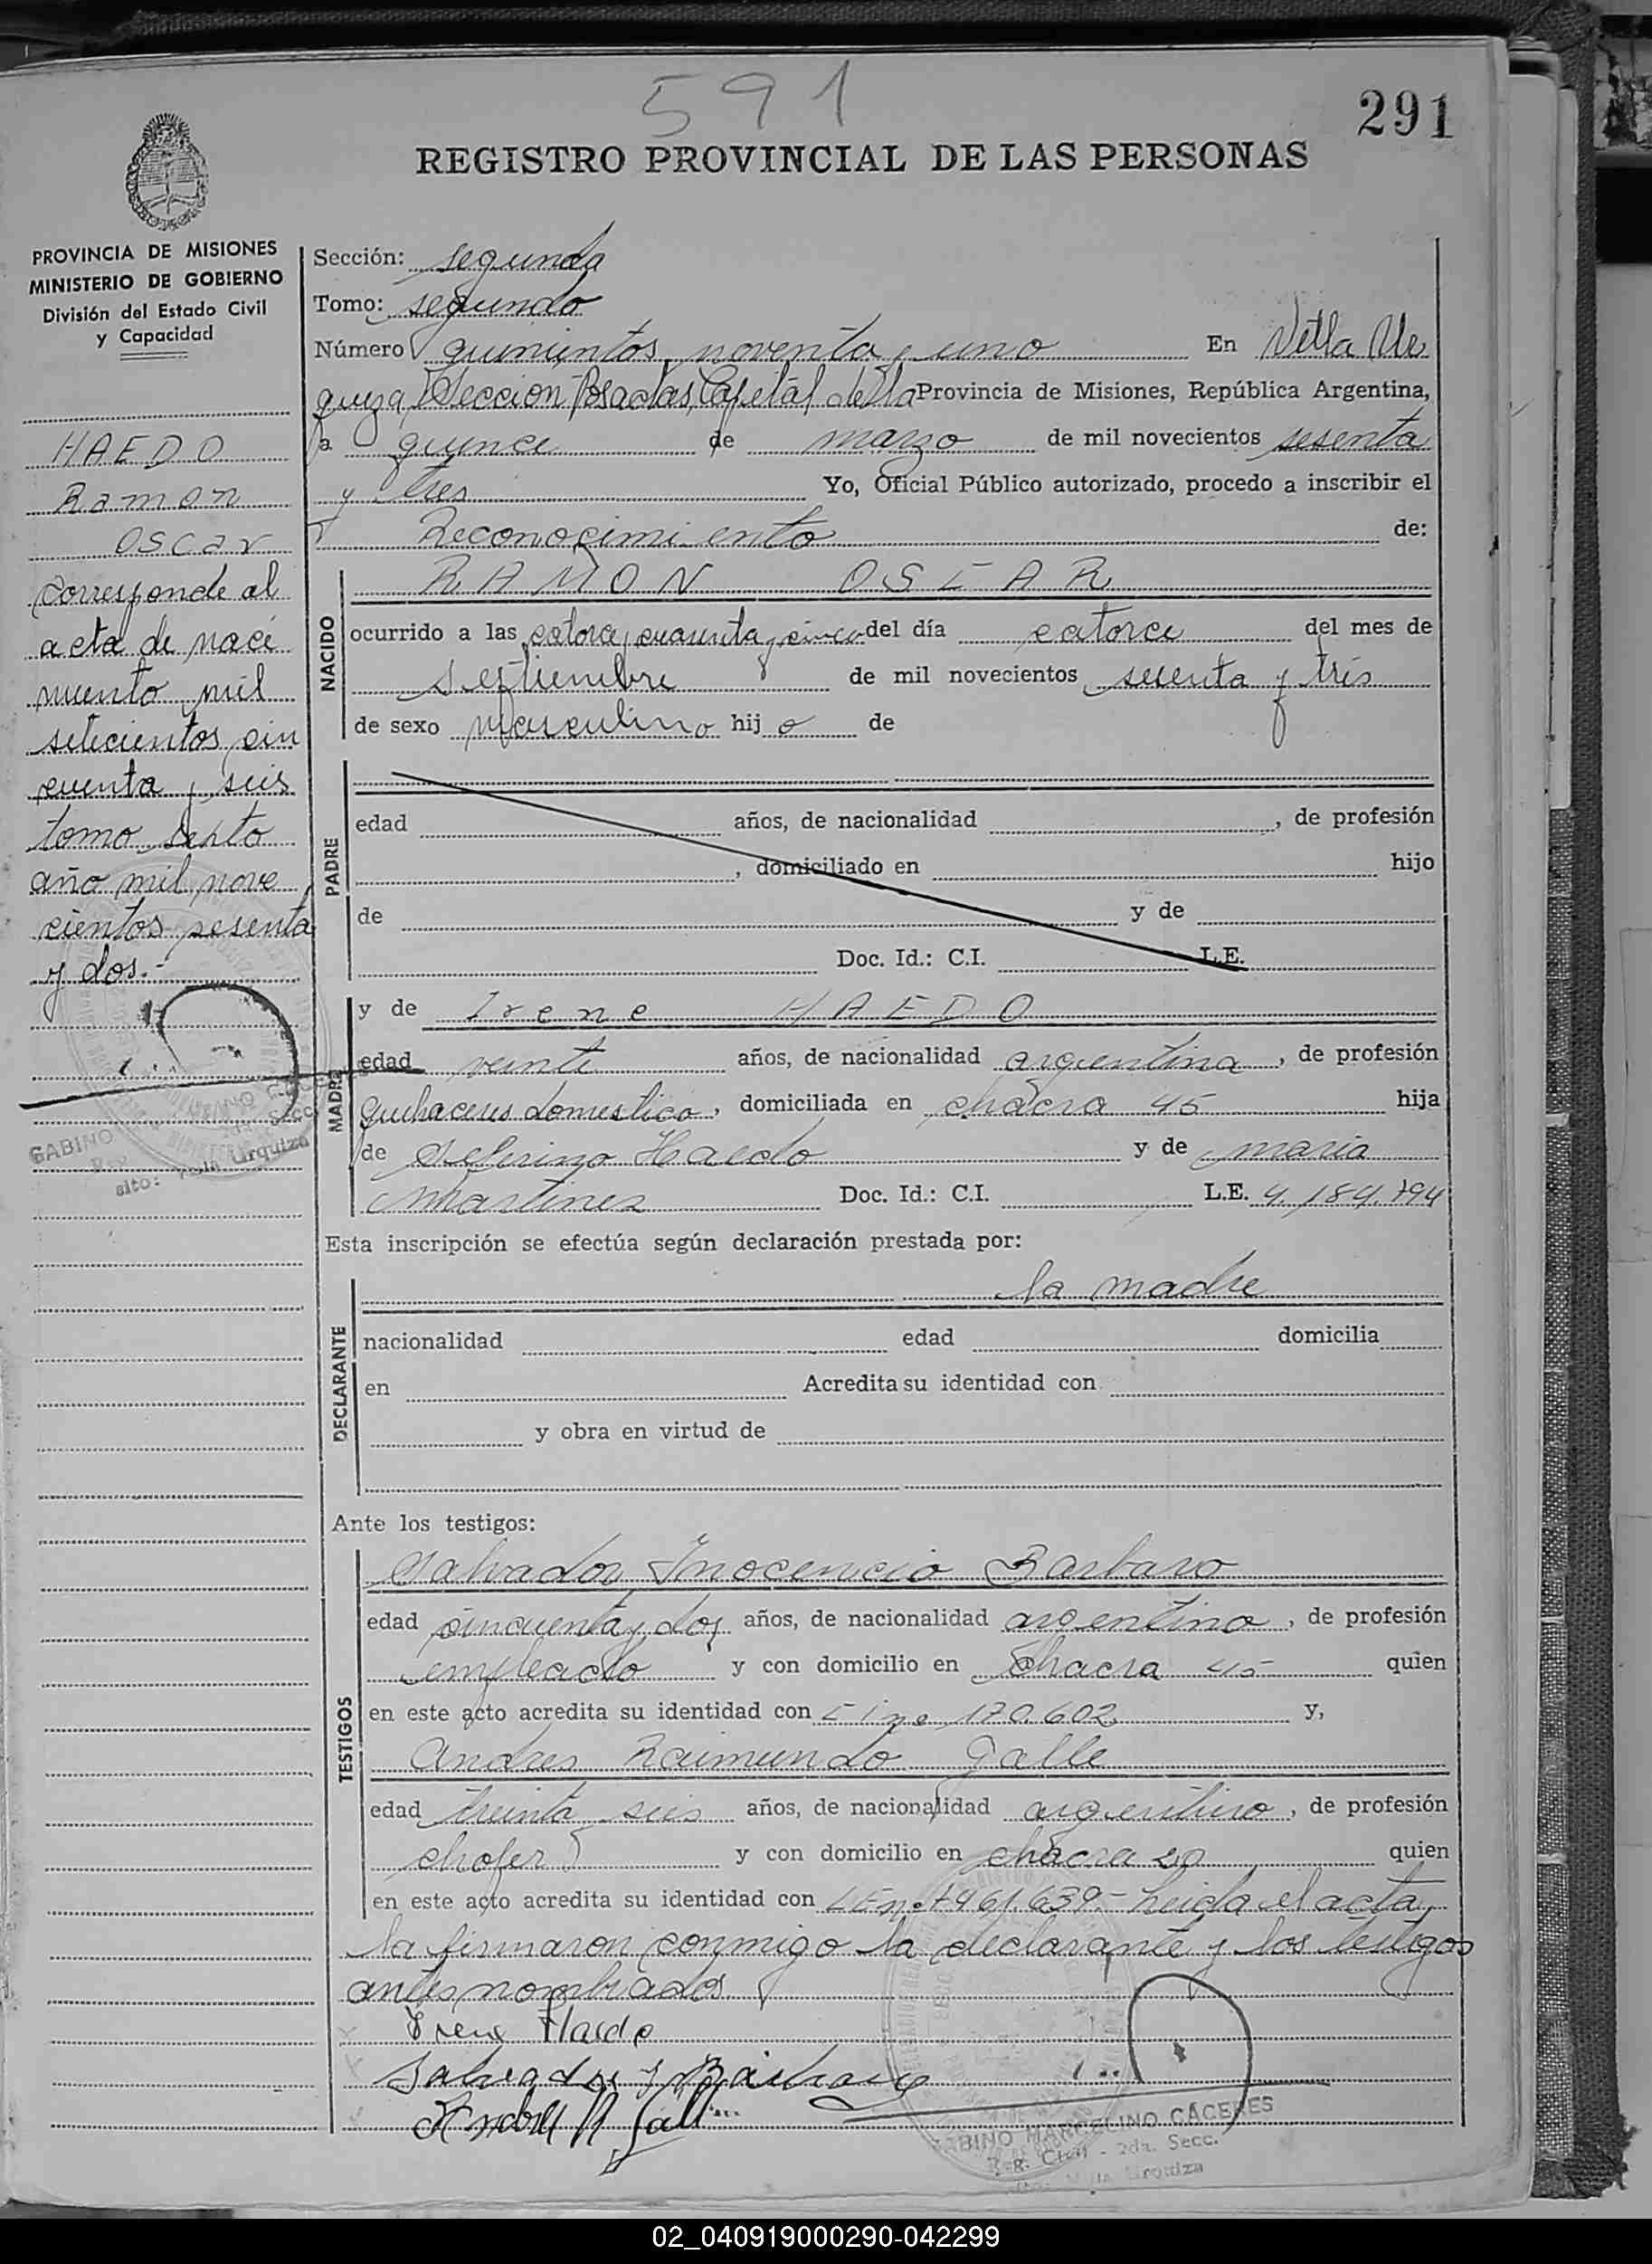 591
291
REGISTRO PROVINCIAL DE LAS PERSONAS
PROVINCIA DE MISIONES
MINISTERIO DE GOBIERNO
División del Estado Civil
y Capacidad
HAEDO
Ramon
Oscar
Corresponde al
acta de naci
miento mil
setecientos cin
cuenta y seis
tomo sexto
año mil nove
cientos sesenta
y dos.-
GABINO
Villa Urquiza
Sección: segunda
Tomo: segundo
Número quinientos noventa y uno En Villa Ur
quiza, Sección Posadas, Capital de la Provincia de Misiones, República Argentina,
a quince de marzo de mil novecientos sesenta
y tres Yo, Oficial Público autorizado, procedo a inscribir el
Reconocimiento de:
NACIDO
RAMON OSCAR
ocurrido a las catorce, cuarenta y cinco del día catorce del mes de
septiembre de mil novecientos sesenta y tres
de sexo masculino hijo de
PADRE
edad años, de nacionalidad , de profesión
, domiciliado en hijo
de y de
Doc. Id.: C.I. L.E.
MADRE
y de Irene HAEDO
edad veinte años, de nacionalidad argentina, de profesión
quehaceres domestico, domiciliada en chacra 45 hija
de Seferino Haedo y de maria
Martinez Doc. Id.: C.I. L.E. 4.184.794
Esta inscripción se efectúa según declaración prestada por:
DECLARANTE
la madre
nacionalidad edad domicilia
en Acredita su identidad con
y obra en virtud de
Ante los testigos:
TESTIGOS
Salvador Inocencio Barbaro
edad cincuenta y dos años, de nacionalidad argentino, de profesión
empleado y con domicilio en Chacra 45 quien
en este acto acredita su identidad con 170.602 y,
Andres Raimundo Galle
edad treinta seis años, de nacionalidad argentino, de profesión
chofer y con domicilio en chacra quien
en este acto acredita su identidad con LE nº 7461.639.- Leida el acta,
la firmaron conmigo la declarante y los testigos
antes nombrados
Irene Haedo
Salvador I Barbaro
Andres R Galle
GABINO MARCELINO CACERES
Reg. Civil - 2da. Secc.
Villa Urquiza
02_040919000290-042299